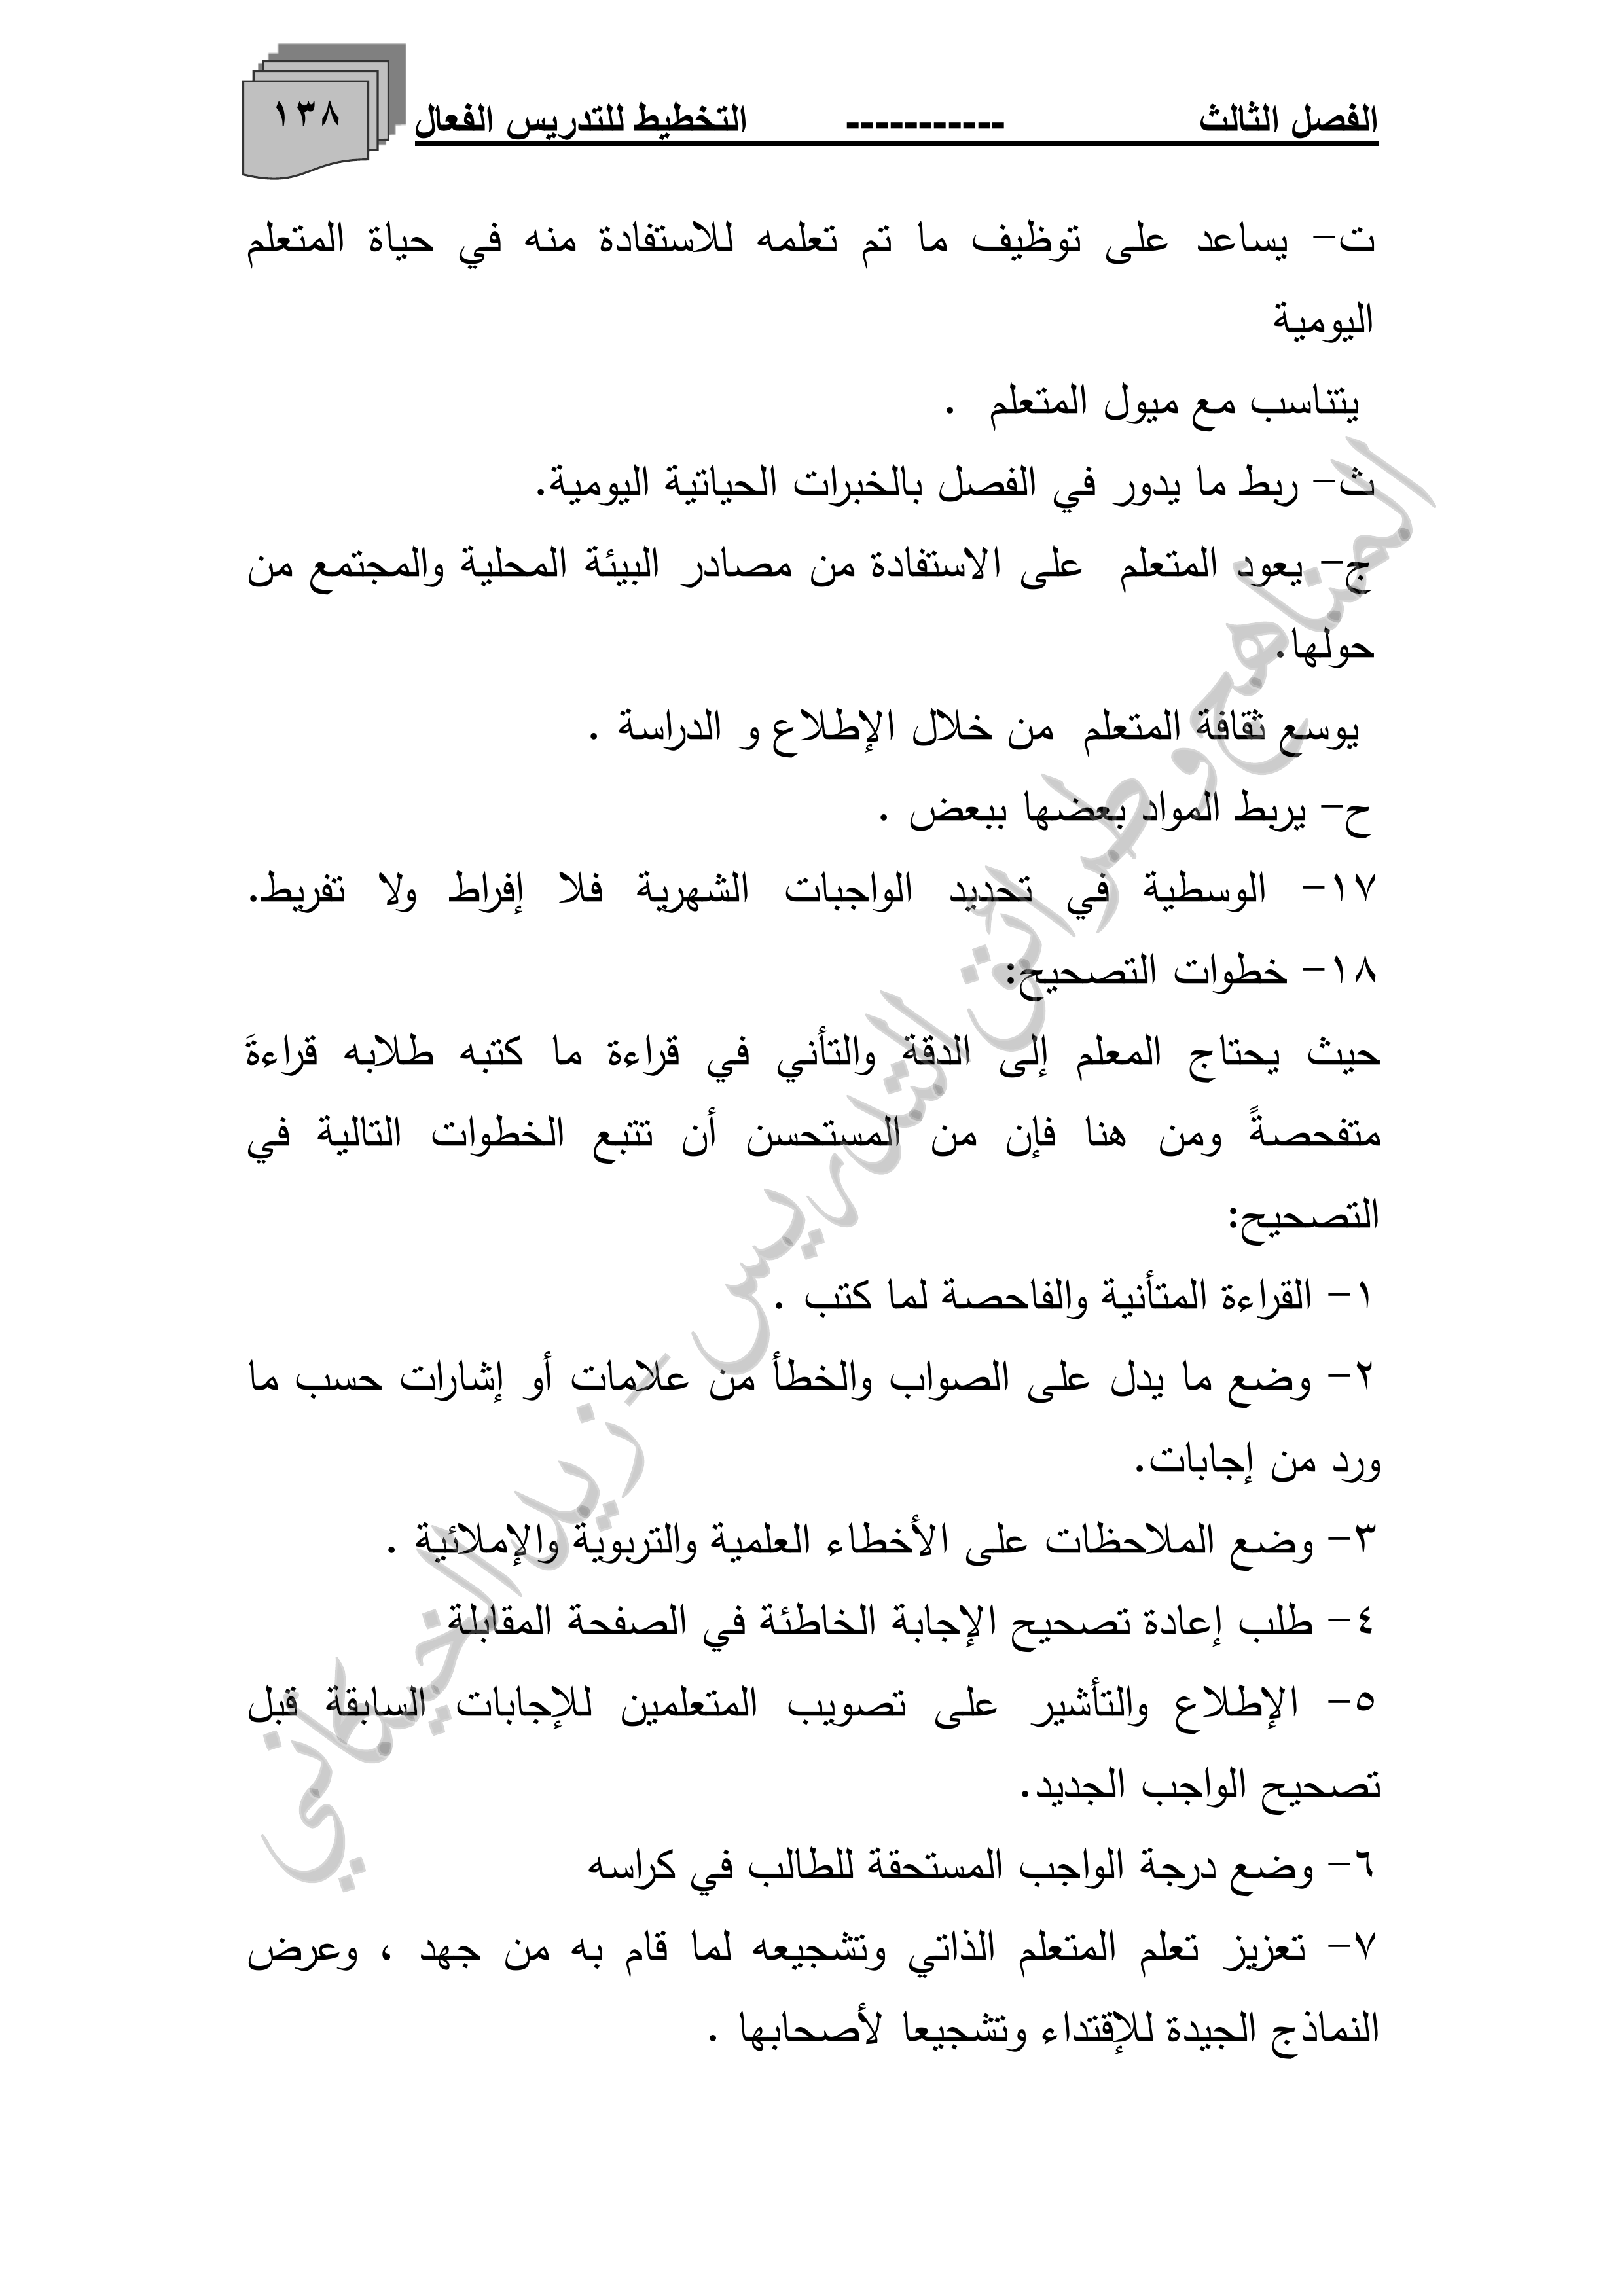 الفصل الثالث ----------- التخطيط للتدريس الفعال ١٣٨
ت- يساعد على توظيف ما تم تعلمه للاستفادة منه في حياة المتعلم
اليومية
يتناسب مع ميول المتعلم .
ث- ربط ما يدور في الفصل بالخبرات الحياتية اليومية.
ج- يعود المتعلم على الاستفادة من مصادر البيئة المحلية والمجتمع من
حولها.
يوسع ثقافة المتعلم من خلال الإطلاع و الدراسة .
ح- يربط المواد بعضها ببعض .
١٧- الوسطية في تحديد الواجبات الشهرية فلا إفراط ولا تفريط.
١٨- خطوات التصحيح:
حيث يحتاج المعلم إلى الدقة والتأني في قراءة ما كتبه طلابه قراءةَ
متفحصةً ومن هنا فإن من المستحسن أن تتبع الخطوات التالية في
التصحيح:
١- القراءة المتأنية والفاحصة لما كتب .
٢- وضع ما يدل على الصواب والخطأ من علامات أو إشارات حسب ما
ورد من إجابات.
٣- وضع الملاحظات على الأخطاء العلمية والتربوية والإملائية .
٤- طلب إعادة تصحيح الإجابة الخاطئة في الصفحة المقابلة
٥- الإطلاع والتأشير على تصويب المتعلمين للإجابات السابقة قبل
تصحيح الواجب الجديد.
٦- وضع درجة الواجب المستحقة للطالب في كراسه
٧- تعزيز تعلم المتعلم الذاتي وتشجيعه لما قام به من جهد ، وعرض
النماذج الجيدة للإقتداء وتشجيعا لأصحابها .
المناهج وطرائق التدريس - زيد الخيكاني